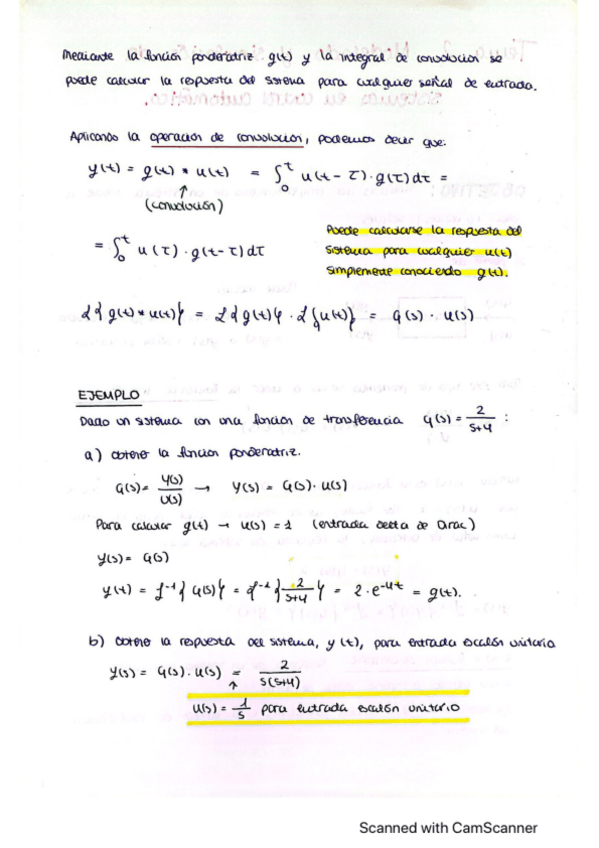 Mediante la función ponderatriz g(t) y la integral de convolución se
puede calcular la respuesta del sistema para cualquier señal de entrada.
Aplicando la operación de convolución, podemos decir que:
y(t) = g(t) * u(t) = ∫₀ᵗ u(t-τ)·g(τ)dτ =
(convolución)
= ∫₀ᵗ u(τ)·g(t-τ)dτ
Puede calcularse la respuesta del
sistema para cualquier u(t)
simplemente conociendo g(t).
ℒ{g(t)*u(t)} = ℒ{g(t)}·ℒ{u(t)} = G(s)·U(s)
EJEMPLO
Dado un sistema con una función de transferencia G(s) = 2/(s+4) :
a) obtener la función ponderatriz.
G(s) = Y(s)/U(s) → Y(s) = G(s)·U(s)
Para calcular g(t) → U(s) = 1 (entrada delta de Dirac)
Y(s) = G(s)
y(t) = ℒ⁻¹{G(s)} = ℒ⁻¹{2/(s+4)} = 2·e^(-4t) = g(t).
b) Obtener la respuesta del sistema, y(t), para entrada escalón unitario
Y(s) = G(s)·U(s) = 2/(s(s+4))
U(s) = 1/s para entrada escalón unitario
Scanned with CamScanner